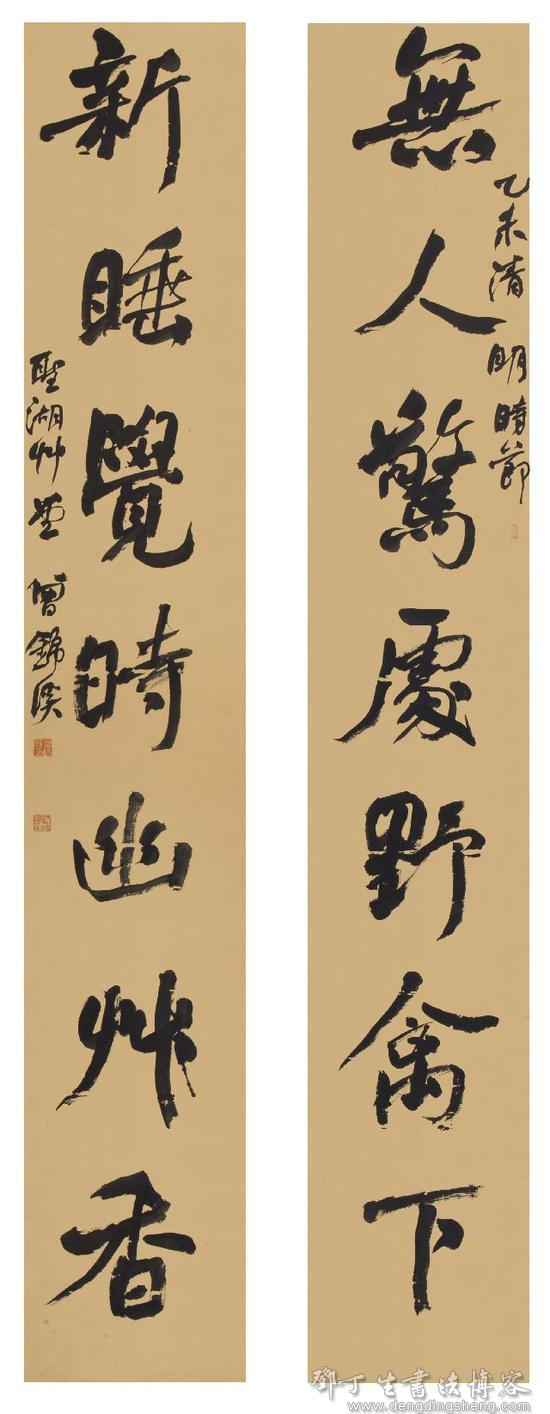 無人驚處野禽下
乙未清明時節
新睡覺時幽艸香
聖湖艸堂 曾錦溪
鄧丁生書法博客
www.dengdingsheng.com